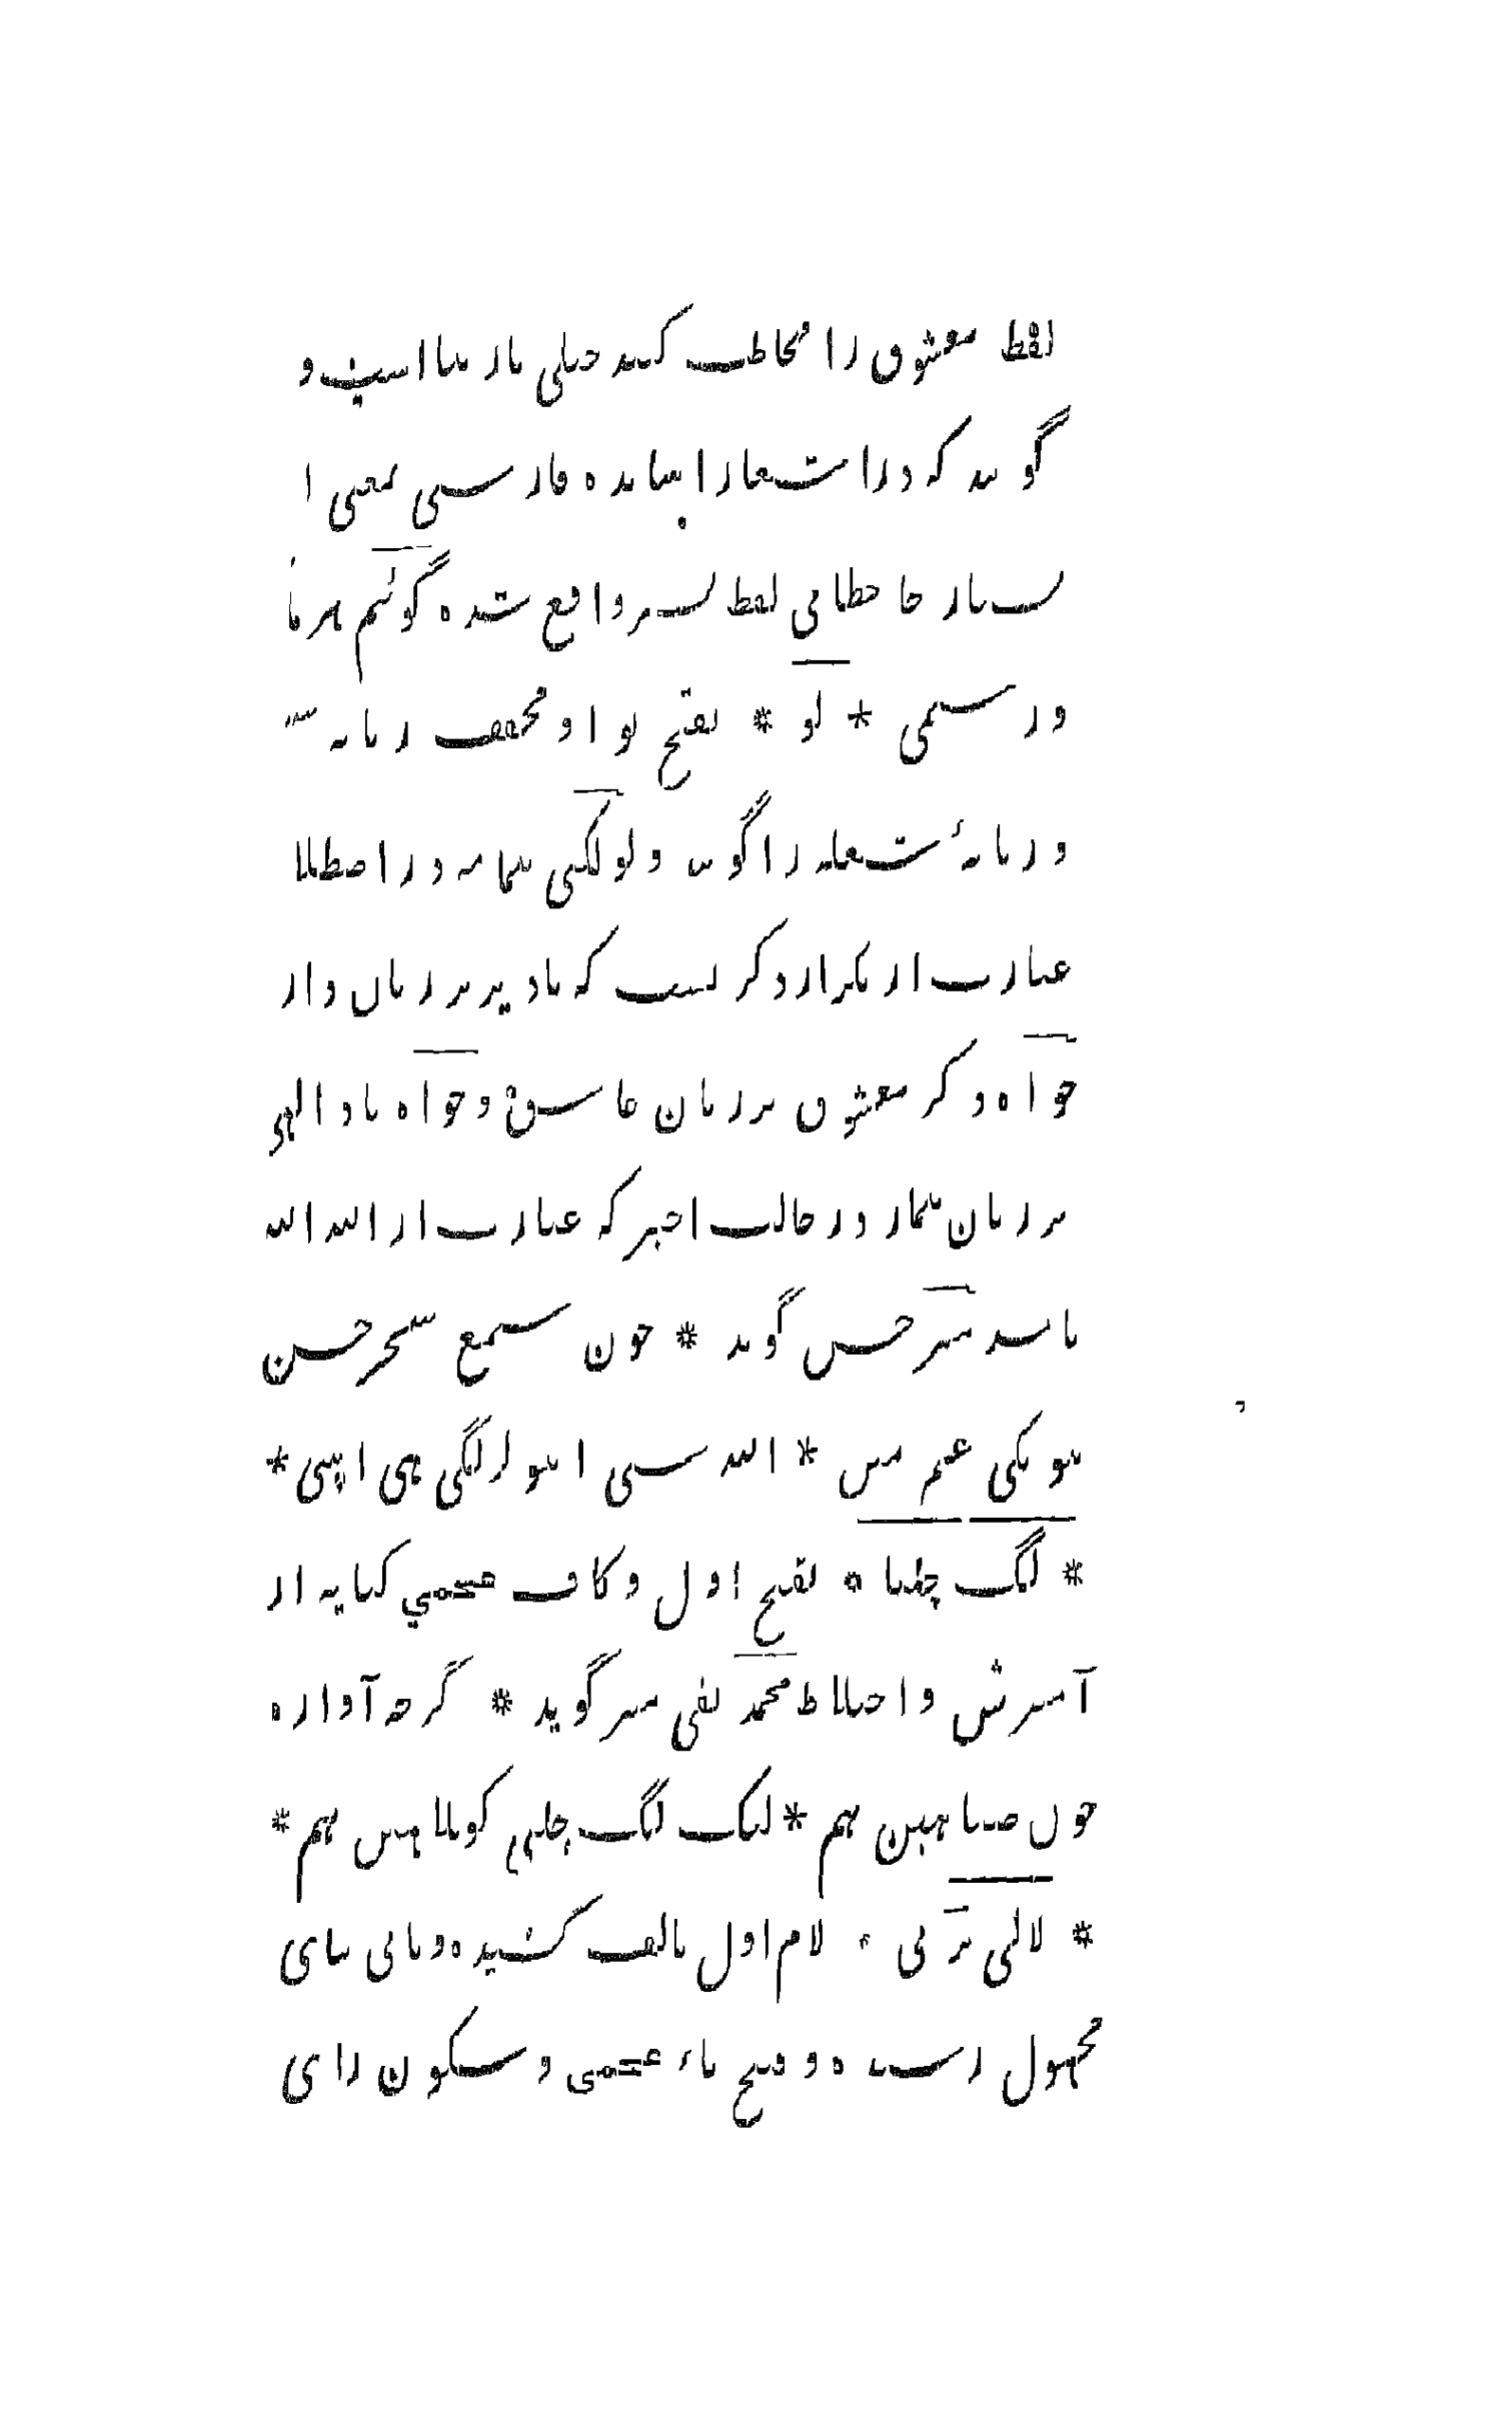 لفظ معشوق را مخاطب کنند خیلی نازیبا است و
گویند که در اشعار اساتذه فارسی بمعنی ا
بسیار جا خطابی لفظ پسر واقع شده گوئیم هر زبا
و رسمی * لو * بفتح لو او مخفف زبانه
و زبانهٔ شعله را گویند و لو لگنی بنمایه در اصطلا
عبارت از تکرار ذکر نیست که یاد پر بر زبان دار
خواه ذکر معشوق بر زبان عاشق و خواه یاد الهی
بر زبان بیمار در حالت اخیر که عبارت از الله الله
باشد میر حسن گوید * جون شمع سحر حسن
بتونکی غم مین * الله سی اب تو لو لگی هی اپنی *
* لگ چلنا * بفتح اول و کاف عجمی کنایه از
آمیزش و اختلاط محمد تقی میر گوید * گرچه آواره
جون صبا هین هم * لیک لگ چلنی کو بلا هین هم *
* لالی پڑنی * لام اول بالف کشیده و ثانی بیای
مجهول رسیده و فتح باء عجمی و سکون رای